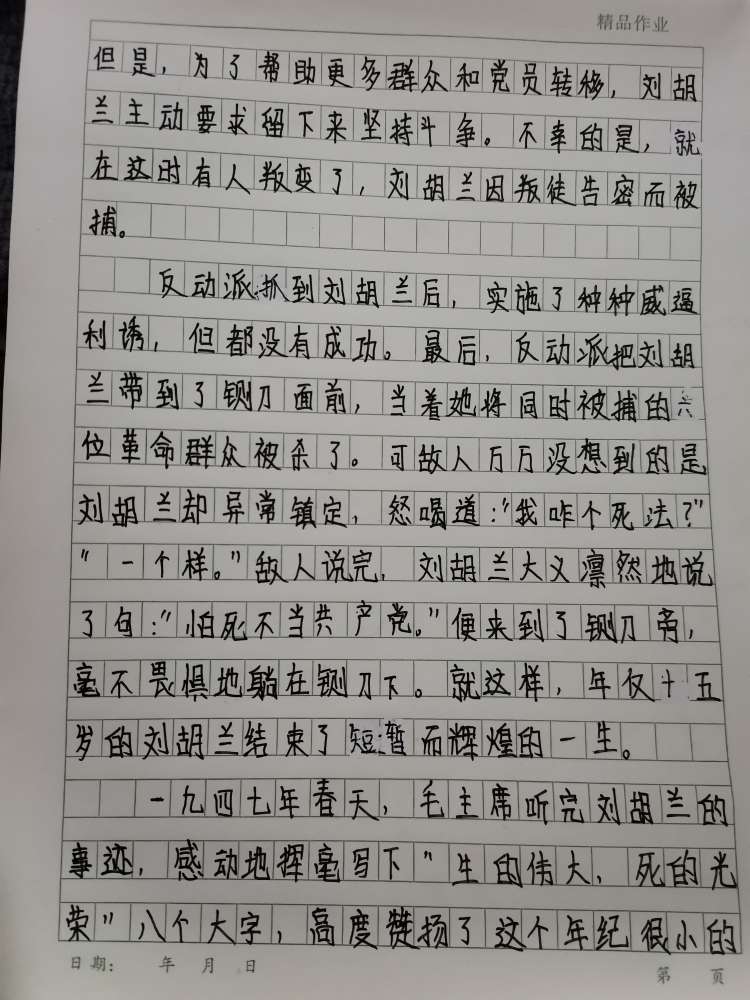 精品作业
但是，为了帮助更多群众和党员转移，刘胡
兰主动要求留下来坚持斗争。不幸的是，就
在这时有人叛变了，刘胡兰因叛徒告密而被
捕。
反动派抓到刘胡兰后，实施了种种威逼
利诱，但都没有成功。最后，反动派把刘胡
兰带到了铡刀面前，当着她将同时被捕的六
位革命群众被杀了。可敌人万万没想到的是
刘胡兰却异常镇定，怒喝道："我咋个死法？"
"一个样。"敌人说完，刘胡兰大义凛然地说
了句："怕死不当共产党。"便来到了铡刀旁，
毫不畏惧地躺在铡刀下。就这样，年仅十五
岁的刘胡兰结束了短暂而辉煌的一生。
一九四七年春天，毛主席听完刘胡兰的
事迹，感动地挥毫写下"生的伟大，死的光
荣"八个大字，高度赞扬了这个年纪很小的
日期： 年 月 日
第 页